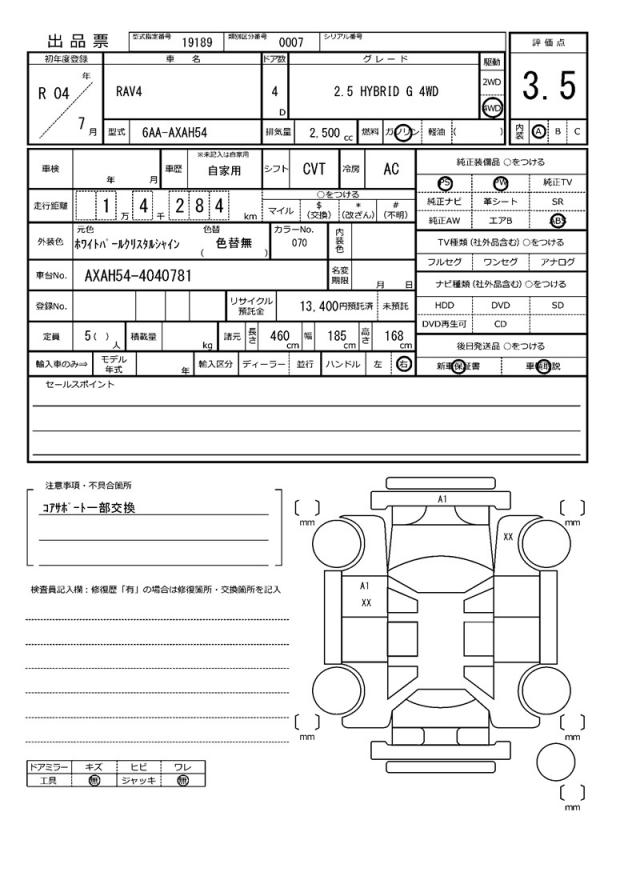 出品票 型式指定番号 19189 類別区分番号 0007 シリアル番号
評価点
3.5
内装 A B C
初年度登録 車名 ドア数 グレード 駆動
R 04 年 7 月 RAV4 4 D 2.5 HYBRID G 4WD 2WD 4WD
型式 6AA-AXAH54 排気量 2,500 cc 燃料 ガソリン 軽油 ( )
車検 年 月 車歴 ※未記入は自家用 自家用 シフト CVT 冷房 AC
走行距離 1 万 4 千 2 8 4 km ○をつける
マイル $ (交換) * (改ざん) # (不明)
外装色 元色 ホワイトパールクリスタルシャイン 色替 ( 色替無 ) カラーNo. 070 内装色
車台No. AXAH54-4040781 名変期限 月 日
登録No. リサイクル預託金 13,400円預託済 未預託
定員 5( ) 人 積載量 kg 諸元 長さ 460 cm 幅 185 cm 高さ 168 cm
輸入車のみ⇒ モデル年式 年 輸入区分 ディーラー 並行 ハンドル 左 右
純正装備品 ○をつける
PS PW 純正TV
純正ナビ 革シート SR
純正AW エアB ABS
TV種類 (社外品含む) ○をつける
フルセグ ワンセグ アナログ
ナビ種類 (社外品含む) ○をつける
HDD DVD SD
DVD再生可 CD
後日発送品 ○をつける
新車保証書 車輌取説
セールスポイント
注意事項・不具合箇所
コアサポート一部交換
検査員記入欄:修復歴「有」の場合は修復箇所・交換箇所を記入
ドアミラー キズ ヒビ ワレ
工具 無 ジャッキ 無
A1
[ ] mm
[ ] mm
XX
A1
XX
[ ] mm
[ ] mm
[ ] mm